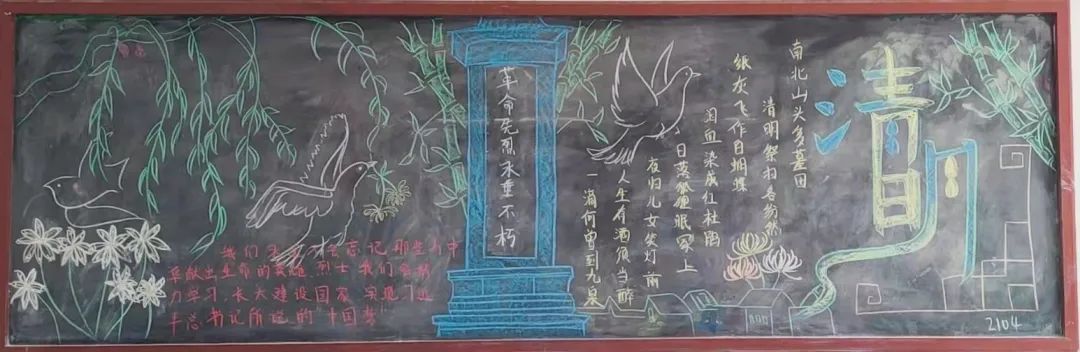 清明
南北山头多墓田
清明祭扫各纷然
纸灰飞作白蝴蝶
泪血染成红杜鹃
日落狐狸眠冢上
夜归儿女笑灯前
人生有酒须当醉
一滴何曾到九泉
革命先烈永垂不朽
我们会忘记那些为中
华献出生命的英雄烈士 我们会努
力学习,长大建设国家,实现习近
平总书记所说的"中国梦"
2104